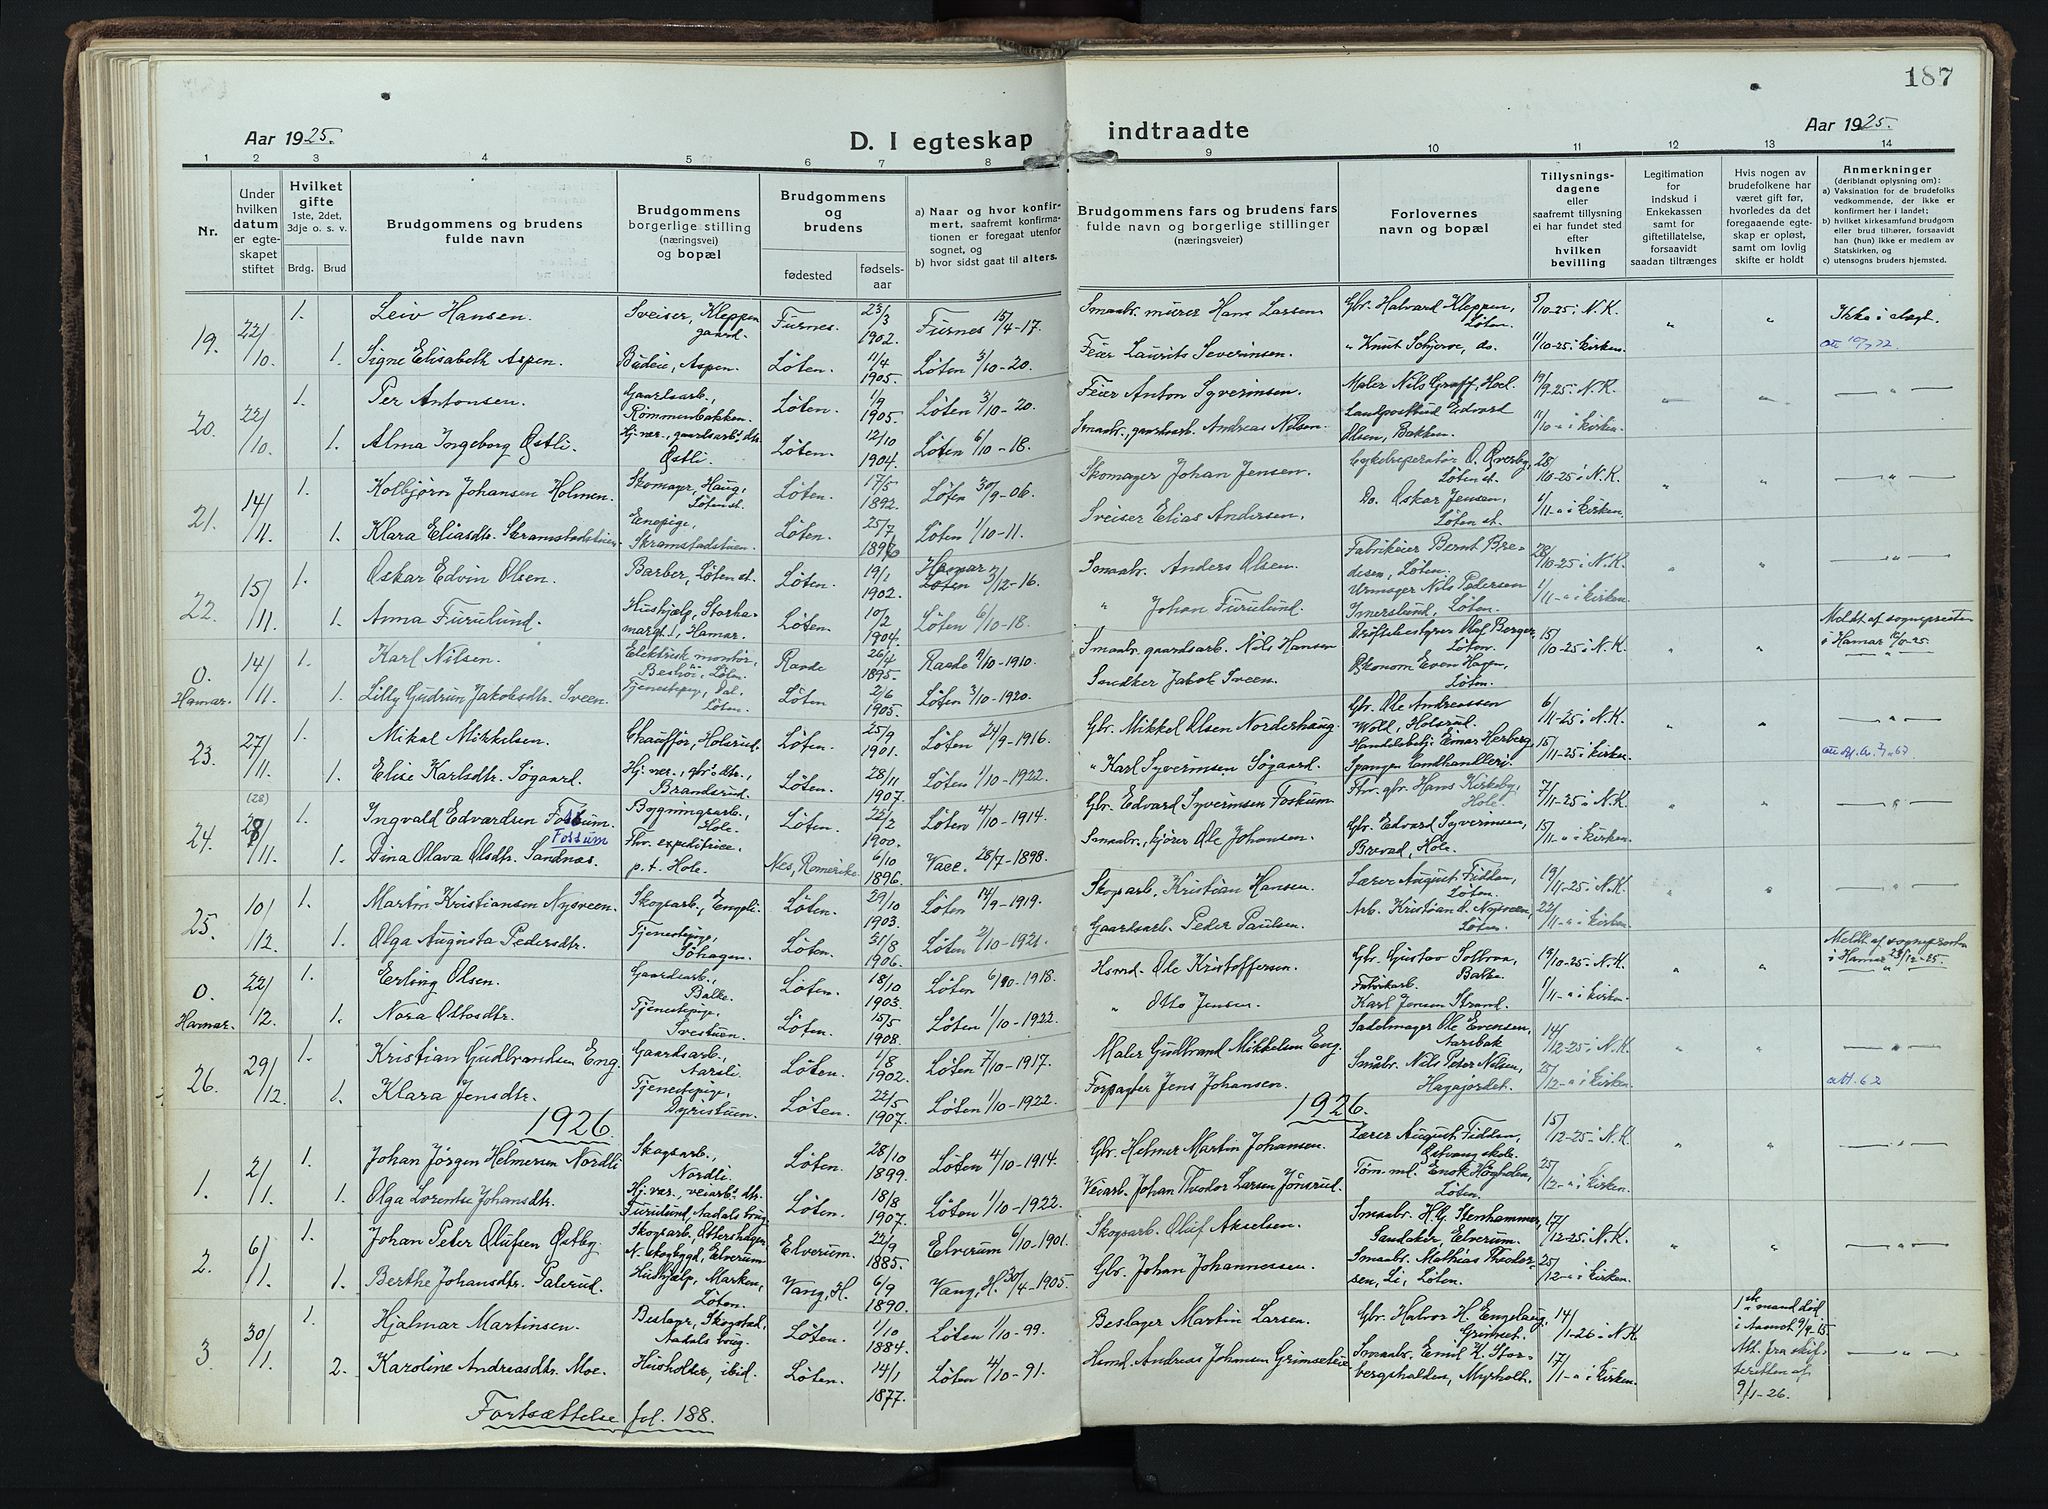 187
Aar 1925.
D. I egteskap indtraadte
Aar 1925.
1 2 3 4 5 6 7 8 9 10 11 12 13 14
Nr.
Under hvilken datum er egteskapet stiftet
Hvilket gifte 1ste, 2det, 3dje o. s. v.
Brdg. Brud
Brudgommens og brudens fulde navn
Brudgommens borgerlige stilling (næringsvei) og bopæl
Brudgommens og brudens
fødested
fødselsaar
a) Naar og hvor konfirmert, saafremt konfirmationen er foregaat utenfor sognet, og
b) hvor sidst gaat til alters.
Brudgommens fars og brudens fars fulde navn og borgerlige stillinger (næringsveier)
Forlovernes navn og bopæl
Tillysningsdagene eller saafremt tillysning ei har fundet sted efter hvilken bevilling
Legitimation for indskud i Enkekassen for giftetillatelse, forsaavidt saadan tiltrænges
Hvis nogen av brudefolkene har været gift før, hvorledes da det foregaaende egteskap er opløst, samt om lovlig skifte er holdt
Anmerkninger (deriblandt oplysning om):
a) Vaksination for de brudefolks vedkommende, der ikke er konfirmert her i landet;
b) hvilket kirkesamfund brudgom eller brud tilhører, forsaavidt han (hun) ikke er medlem av Statskirken, og
c) utensogns bruders hjemsted.
19. 22/10 1. Leiv Hansen. Sveiser, Kleppen gaard. Furnes. 23/3 1902. Furnes 15/4-17. Smaabr. murer Hans Larsen Gbr. Halvard Kleppen, Løten. 5/10-25 i N.K. " " Ikke i slegt.
1. Signe Elisabeth Aspen. Budeie, Aspen. Løten. 11/4 1905. Løten 3/10-20. Feier Laurits Severinsen. " Knut Schjerve, do. 11/10-25 i kirken.
20. 22/10 1. Per Antonsen. Gaardsarb., Rømmenbakken. Løten. 1/9 1905. Løten 3/10-20. Feier Anton Syverinsen. Maler Nils Graff, Hoel. 19/9-25 i N.K. " " — " —
1. Alma Ingeborg Østli. Hj. vær., gaardsarb.s dtr. Østli. Løten. 12/10 1904. Løten 6/10-18. Smaabr., gaardsarb. Andreas Nilsen. Landpostbud Edvard Olsen, Bakken. 11/10-" i kirken.
21. 14/11. 1. Kolbjørn Johansen Holmen. Skomaker, Haug, Løten st. Løten. 17/5 1892. Løten 30/9-06. Skomager Johan Jensen. Cykelreperatør O. Øverby, Løten st. 28/10-25 i N.K. " " — " —
1. Klara Eliasdtr. Skramstadstuen. Enepige, Skramstadstuen. Løten. 25/7 1896 Løten 1/10-11. Sveiser Elias Andersen. Do. Oskar Jensen, Løten st. 1/11-" i kirken.
22. 15/11. 1. Oskar Edvin Olsen. Barber, Løten st. Løten. 19/1 1902. Hamar Løten 3/12-16. Smaabr. Anders Olsen. Fabrikeier Bernt Bredesen, Løten. 28/10-25 i N.K. " " — " —
1. Anna Furulund. Hushjælp, Storhamargt. 1, Hamar. Løten. 10/2 1904. Løten 6/10-18. " Johan Furulund. Urmager Nils Pedersen Imerslund, Løten. 1/11-" i kirken.
0. Hamar. 14/11. 1. Karl Nilsen. Elektrisk montør, Løten. Raade 26/4 1895. Raade 9/10-1910. Smaabr. gaardsarb. Nils Hansen Driftsbestyrer Olaf Berger, Løten. 15/10-25 i N.K. " " Meldt af sognepresten i Hamar
1. Lilly Gudrun Jakobsdtr. Sveen. Tjenestepige, Dal. Løten. Løten 2/6 1905. Løten 3/10-1920. Sandker Jakob Sveen. Økonom Even Hagen, Løten.
23. 27/11. 1. Mikal Mikkelsen. Chauffør, Holerud. Løten. 25/9 1901. Løten 24/9-1916. Gbr. Mikkel Olsen Norderhaug. Gbr. Ole Andreassen Wold, Holerud. 6/11-25 i N.K. " " — " —
1. Elise Karlsdtr. Søgaard. Hj. vær., gbr.s dtr., Brandsrud. Løten. 28/11 1907. Løten 1/10-1922. " Karl Syverinsen Søgaard. Handelsbetj. Einar Herberg, Spangen Landhandleri. 15/11-25 i kirken.
24. (28) 28/11. 1. Ingvald Edvardsen Foskum. Fossum Bygningsarb., Hole. Løten. 22/2 1900. Løten 4/10-1914. Gbr. Edvard Syverinsen Foskum Fhv. gbr. Hans Kirkeby, Hole. 7/11-25 i N.K. " " — " —
1. Dina Olava Olsdtr. Sandnæs. Fhv. expeditrice, p.t. Hole. Nes, Romerike. 6/10 1896. 28/7-1898. Smaabr., kjører Ole Johansen. Gbr. Edvard Syverinsen, Brevad, Hole. 15/11-" i kirken.
25. 10/12. 1. Martin Kristiansen Nysveen. Skogsarb., Engeli. Løten. 29/10 1903. Løten 14/9-1919. Skogsarb. Kristian Hansen. Lærer August Fidden, Løten. 19/11-25 i N.K. " " — " —
1. Olga Augusta Pedersdtr. Tjenestepige, Søhagen. Løten. 31/8 1906. Løten 2/10-1921. Gaardsarb. Peder Paulsen. Arb. Kristian d. Nysveen, Løten. 22/11-" i kirken.
0. Hamar. 22/12. 1. Erling Olsen. Gaardsarb., Balke. Løten. 18/10 1903. Løten 6/10-1918. Hsmd. Ole Kristoffersen. Gbr. Gustav Solbraa, Balke. 19/10-25 i N.K. " " Meldt af sognepresten i Hamar 23/12-25.
1. Nora Ottosdtr. Tjenestepige, Svestuen. Løten. 15/5 1908. Løten 1/10-1922. " Otto Jensen. Fabrikarb. Karl Jensen Strand. 1/11-" i kirken.
26. 29/12. 1. Kristian Gudbrandsen Eng. Gaardsarb., Aarsli. Løten. 1/8 1902. Løten 7/10-1917. Maler Gudbrand Mikkelsen Eng. Sadelmager Ole Evensen, Aarsbak 14/12-25 i N.K. " " — " —
1. Klara Jensdtr. Tjenestepige, Dyristuen. Løten. 22/5 1907. Løten 1/10-1922. Forpagter Jens Johansen. Smabr. Nils Peter Nilsen, Hagajordet. 25/12-" i kirken.
1926 1926.
1. 2/1. 1. Johan Jørgen Helmersen Nordli Skogsarb., Nordli. Løten. 28/10 1899. Løten 4/10-1914. Gbr. Helmer Martin Johansen. Lærer August Fidden, Østvang skole. 15/12-25 i N.K. " " — " —
1. Olga Lorentse Johansdtr. Hj. vær., veiarb.s dtr. Furulund, Aadals brug. Løten. 18/8 1907. Løten 1/10-1922. Veiarb. Johan Theodor Larsen Jønsrud. Tøm.md. Enok Høgholen, Løten. 25/12-" i kirken.
2. 6/1. 1. Johan Peter Olufsen Østby. Skogsarb., N. skogbygd, Elverum Elverum. 22/9 1885. Elverum 6/10-1901. Skogsarb. Oluf Akselsen. Smaabr. H.G. Stenhammer, Sandaker, Elverum. 17/12-25 i N.K. " " — " —
1. Berthe Johansdtr. Palerud. Hushjælp, Marken, Løten. Vang, H. 6/9 1890. Vang, H. 30/4-1905. Gbr. Johan Johannessen. Smaabr. Mathias Theodorsen, Li, Løten. 25/12-" i kirken.
3. 30/1. 1. Hjalmar Martinsen. Beslagr., Skogstad, Aadals brug. Løten. 1/10 1884. Løten 1/10-99. Beslager Martin Larsen. Gbr. Halvor H. Engelaug, Grimset. 14/1-26 i N.K. " 1ste mand død
2. Karoline Andreasdtr. Moe. Husholder, ibid. Løten. 14/1 1877. Løten 4/10-91. Hsmd. Andreas Johansen Grimseteie Smaabr. Emil K. Storbergshalden, Myrholt. 17/1-" i kirken. Att. fra skifteretten af 9/1-26. — " —
Fortsættelse fol. 188.